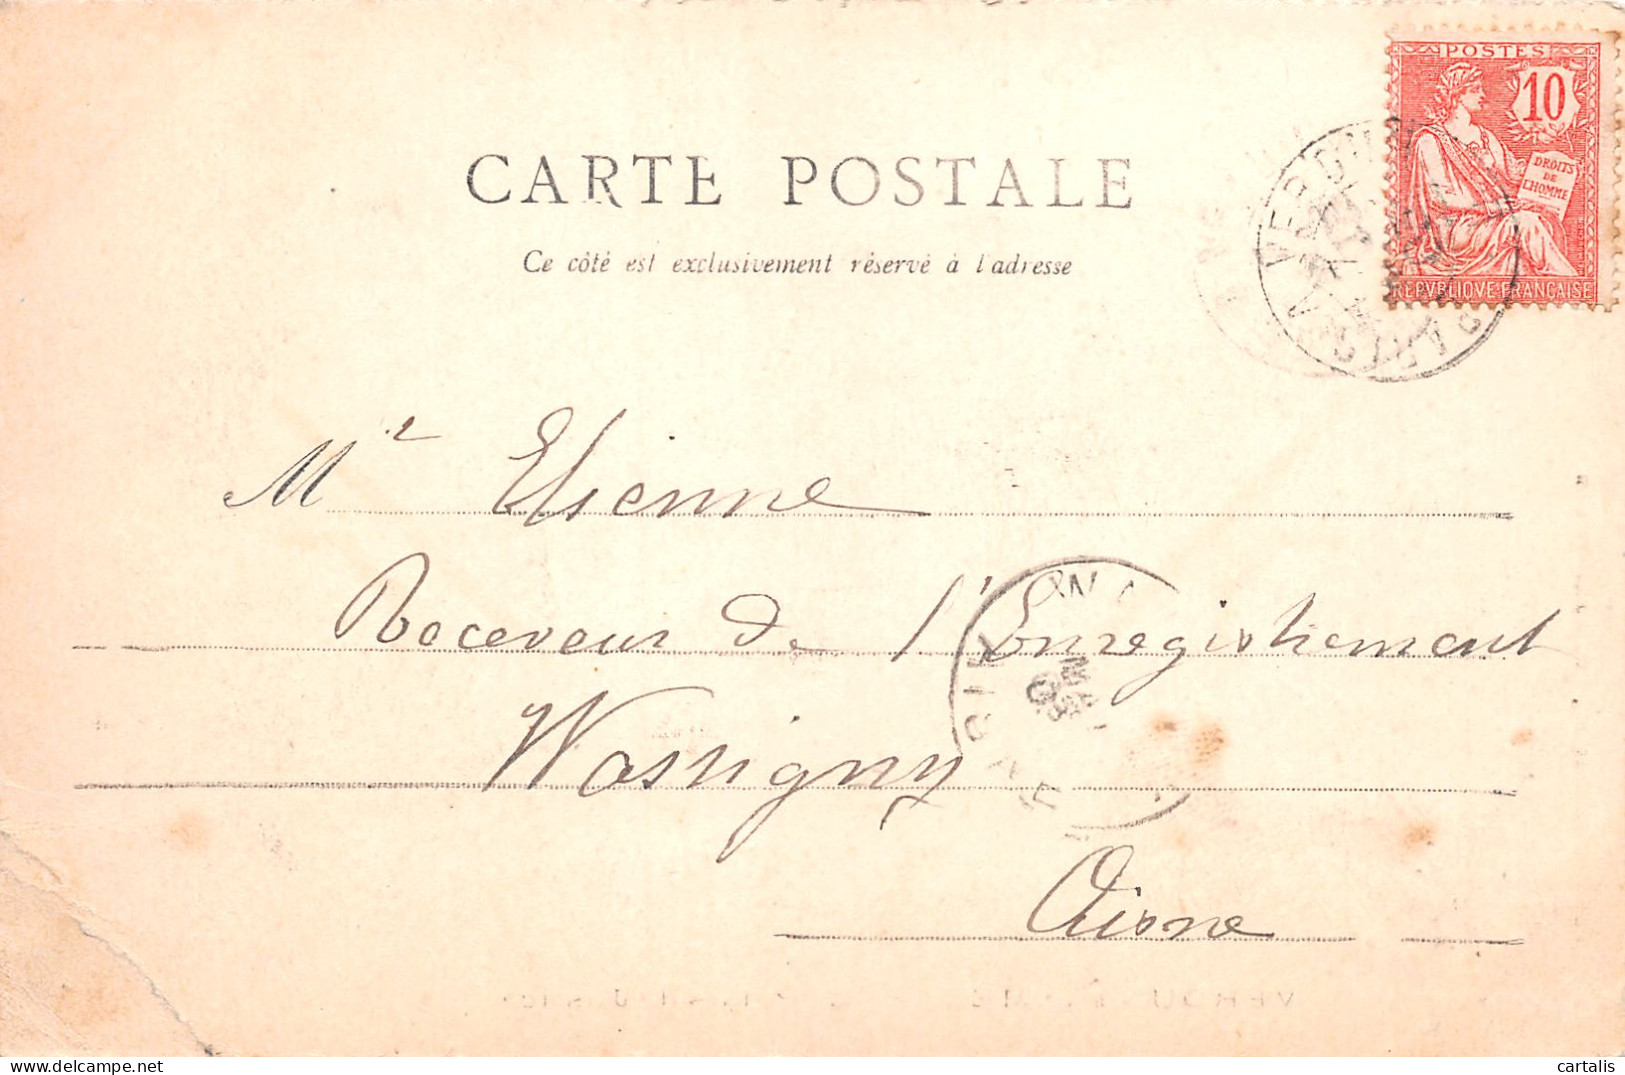 POSTES
10
DROITS
DE
L'HOMME
REPVBLIQVE FRANÇAISE
VERDUN
CARTE POSTALE
Ce côté est exclusivement réservé à l'adresse
Mr Etienne
Receveur de l'Enregistrement
Wassigny
Aisne
cartalis